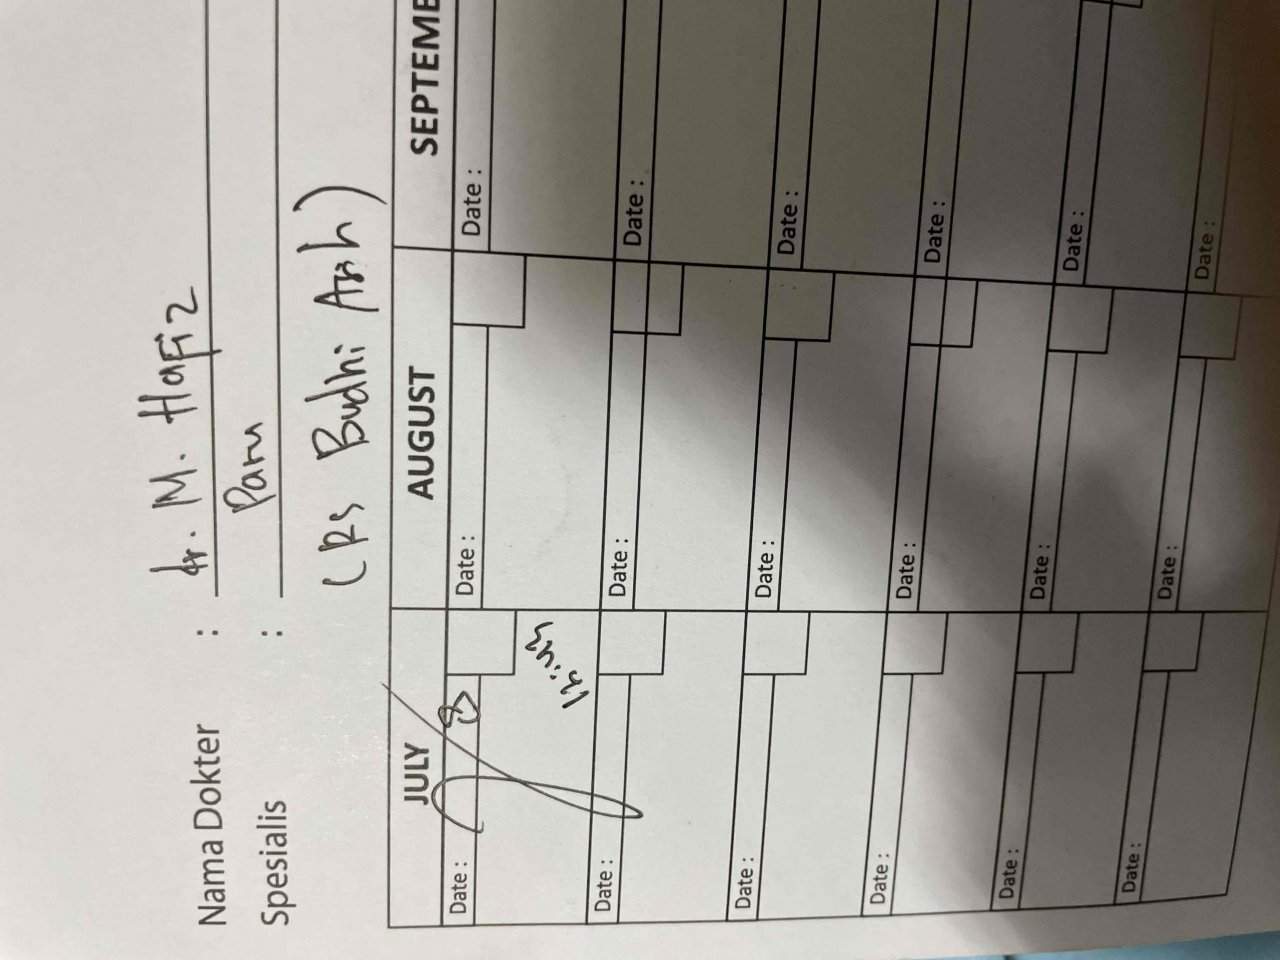 Nama Dokter : dr. M. Hafiz
Spesialis : Paru
(RS Budhi Asih)
JULY AUGUST SEPTEMB
Date : Date : Date :
Date : Date : Date :
Date : Date : Date :
Date : Date : Date :
Date : Date : Date :
Date : Date : Date :